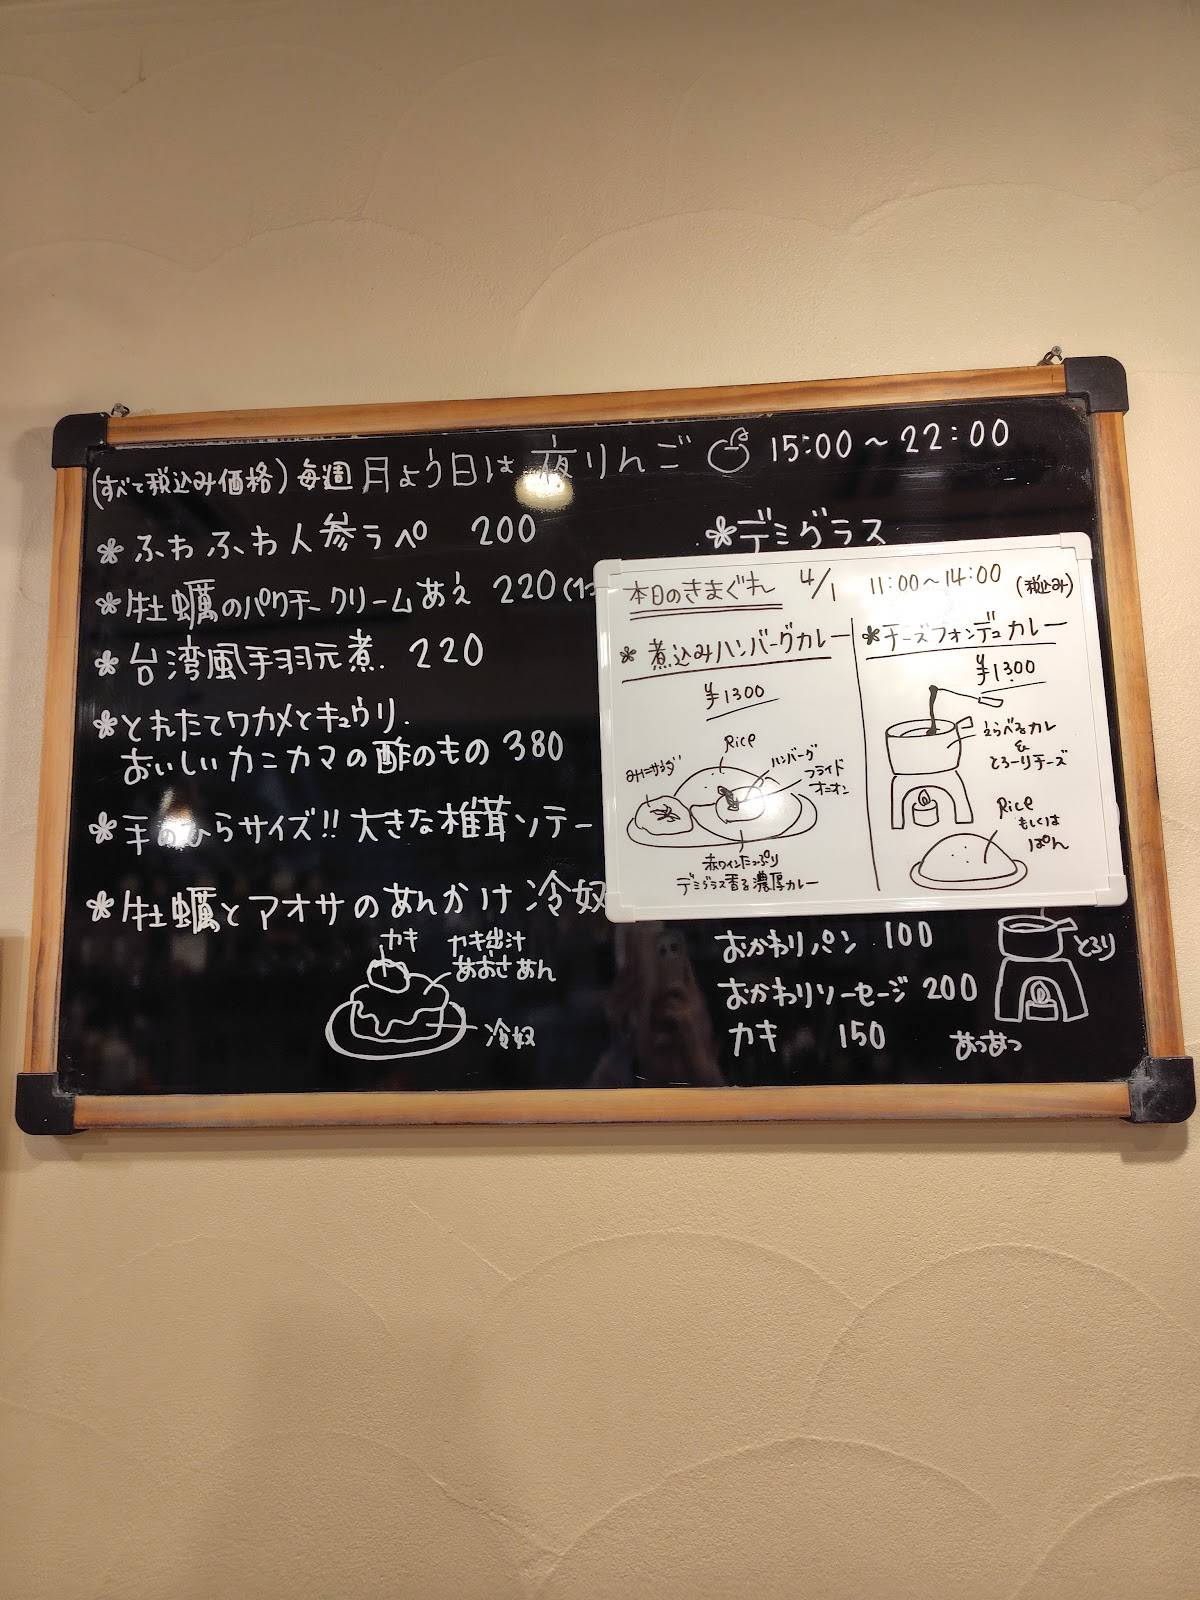 (すべて税込み価格) 毎週 月よう日は 夜りんご 15:00～22:00
＊ふわふわ人参ラペ 200
＊牡蠣のパクチークリームあえ 220 (1コ
＊台湾風手羽元煮. 220
＊とれたてワカメとキュウリ.
おいしいカニカマの酢のもの 380
＊手のひらサイズ!! 大きな椎茸ソテー
＊牡蠣とアオサのあんかけ 冷奴
カキ
カキ出汁
あおさあん
冷奴
＊デミグラス
本日のきまぐれ 4/1 11:00～14:00 (税込み)
＊煮込みハンバーグカレー
¥1300
Rice
ハンバーグ
フライド
オニオン
みにサラダ
赤ワインたっぷり
デミグラス香る濃厚カレー
＊チーズフォンデュカレー
¥1300
えらべるカレー
&
とろーりチーズ
Rice
もしくは
ぱん
おかわりパン 100
おかわりソーセージ 200
カキ 150
とろり
あつあつ